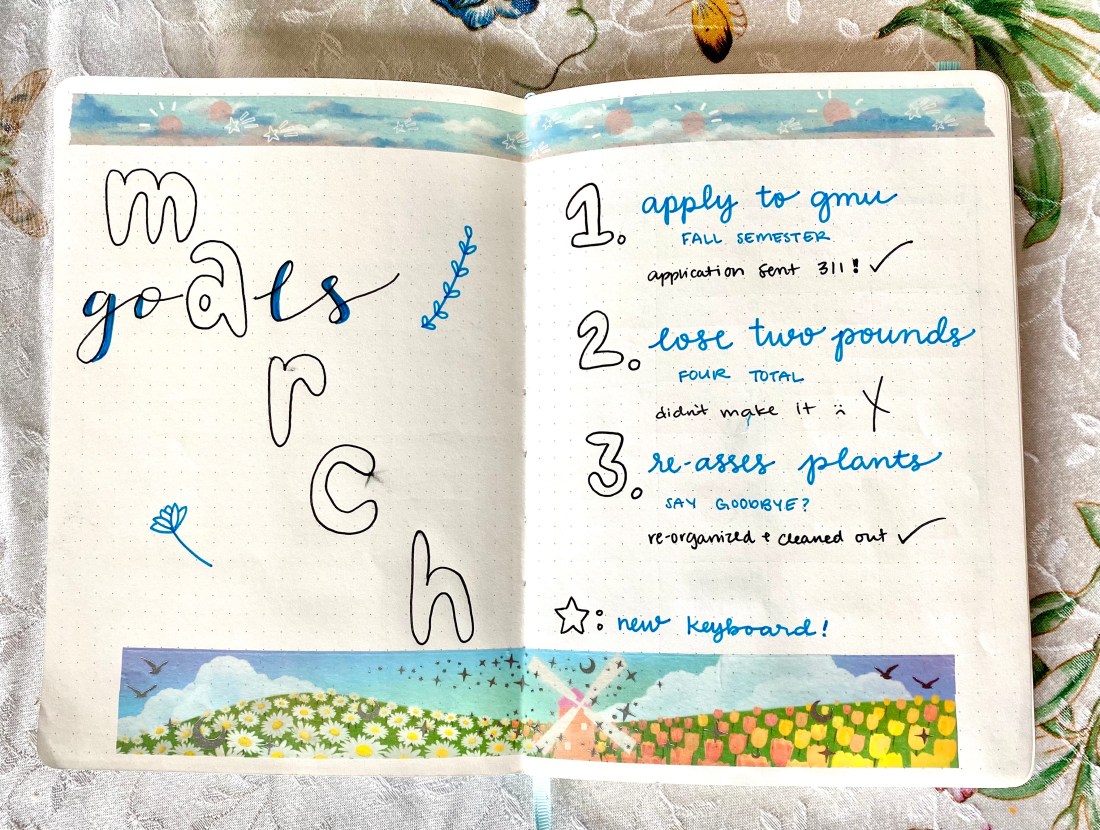 march
goals
1. apply to gmu
FALL SEMESTER
application sent 3/1! ✓
2. lose two pounds
FOUR TOTAL
didn't make it :( X
3. re-asses plants
SAY GOODBYE?
re-organized + cleaned out ✓
☆: new keyboard!